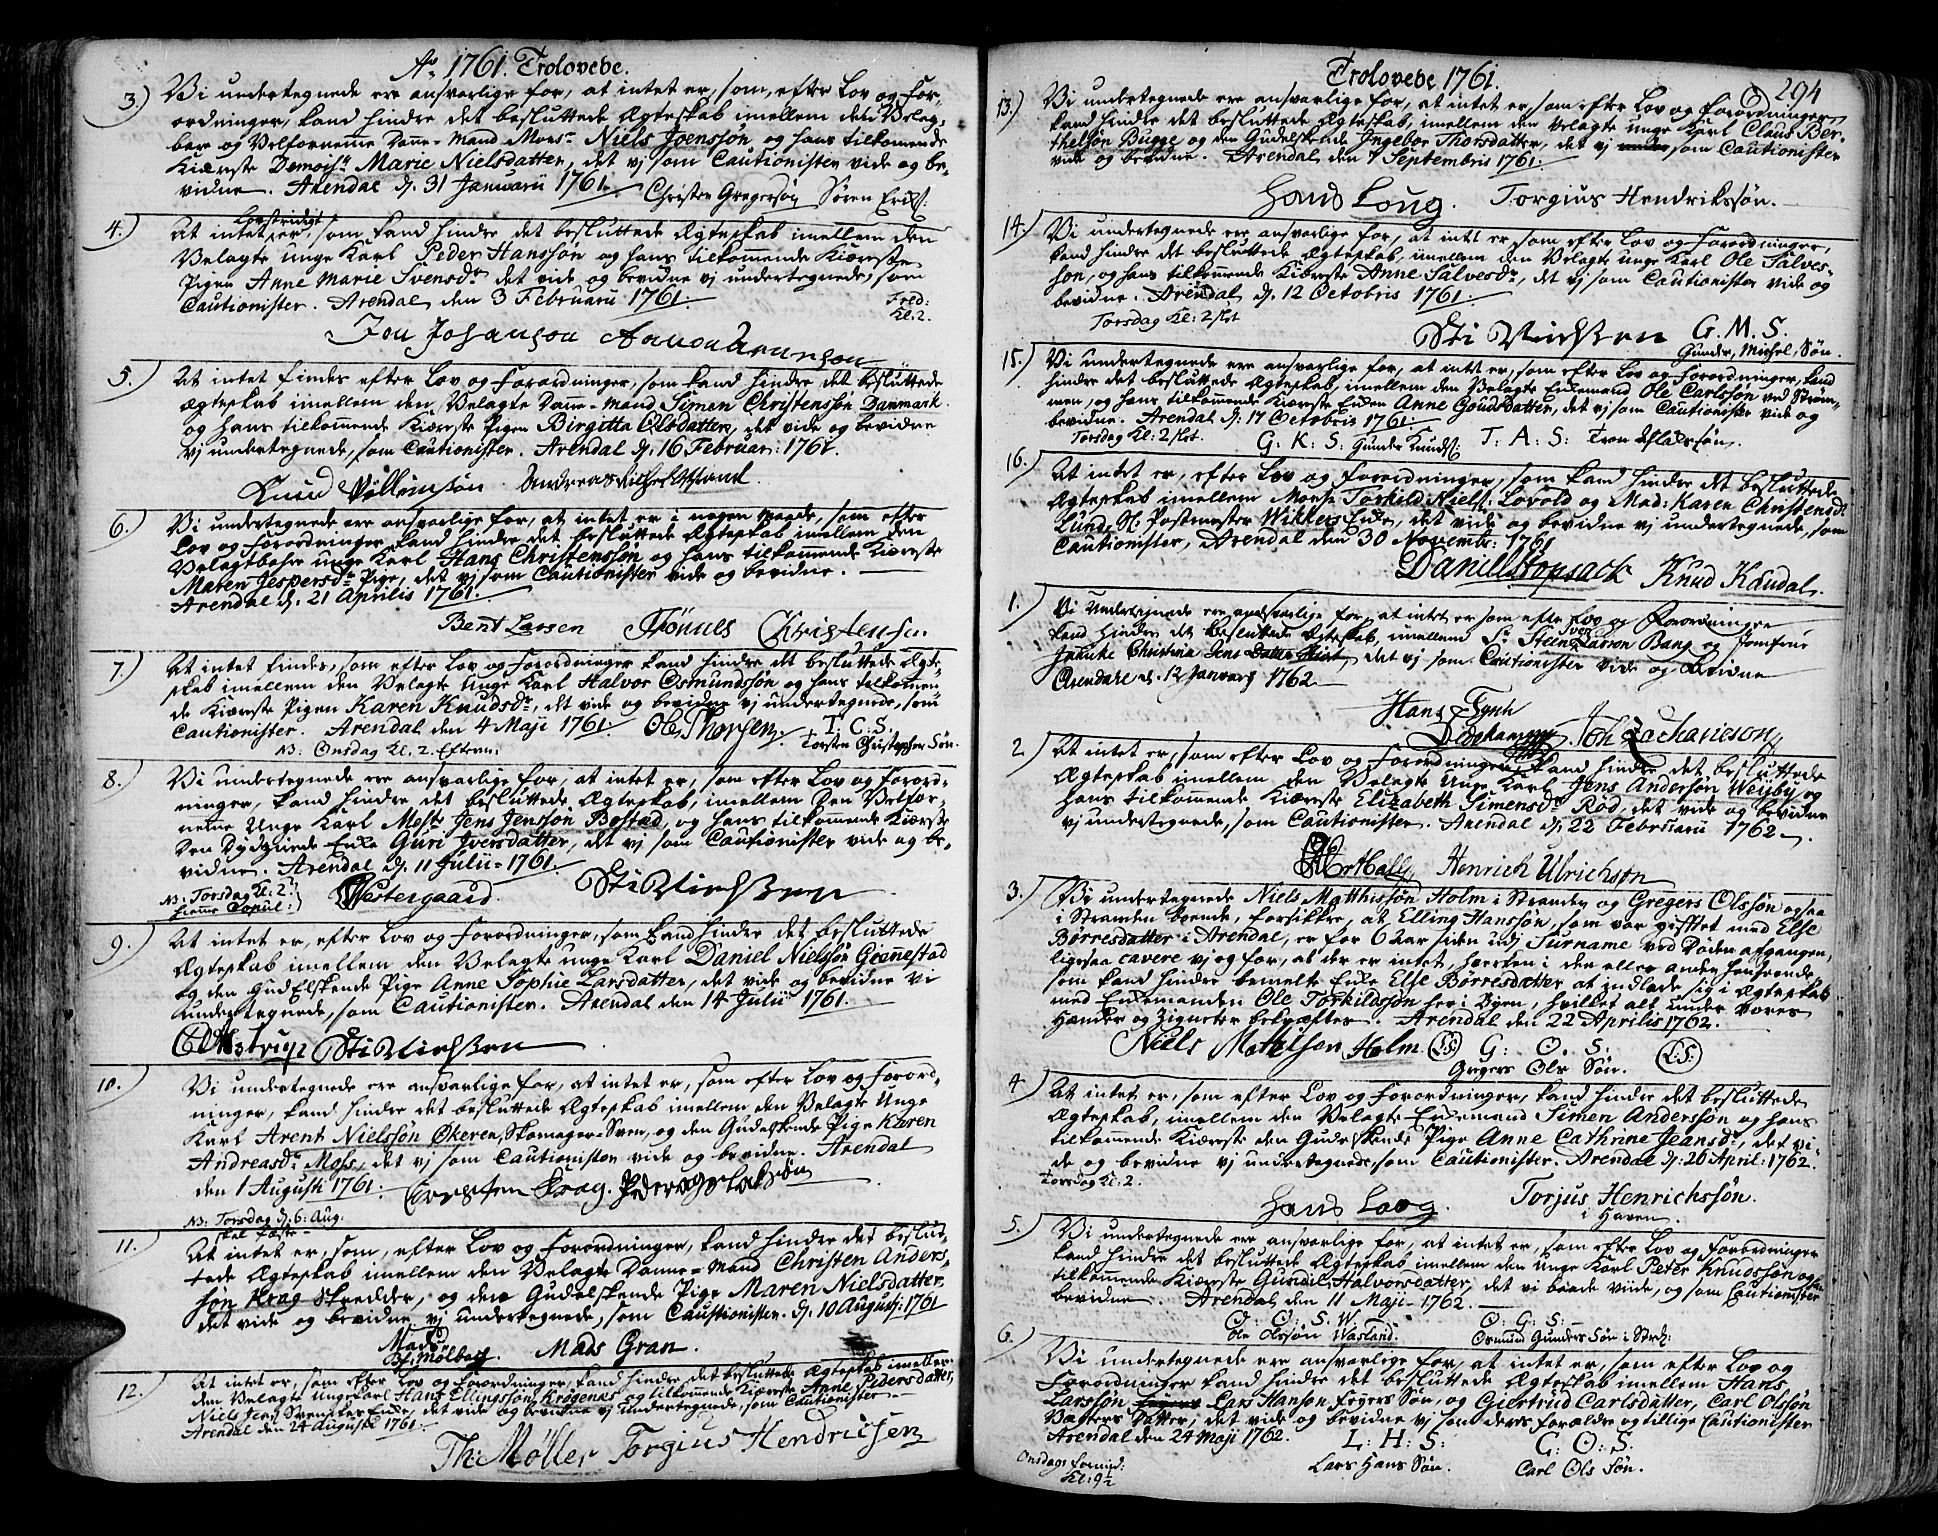 Aº 1761. Trolovede.
3.) Vi undertegnede ere ansvarlige for, at intet er, som, efter Lov og For-
ordninger, kand hindre det besluttede Ægteskab imellem den Velag-
bare og Velfornemme Danne-Mand Monsr. Niels Joenssøn og hans tilkommende
Kiærste Demoisle Marie Nielsdatter, det vj som Cautionister vide og be-
vidne. Arendal d. 31 Januarii 1761.
Christen Gregersøn Søren Erichs:
4.) At intet Lovstridigt er, som kand hindre det besluttede Ægteskab imellem den
Velagte unge Karl Peder Hanssøn og hans tilkommende Kiærste
Pigen Anne Marie Svensdr. det vide og bevidne vj undertegnede, som
Cautionister. Arendal den 3 Februarii 1761.
Fred:
Kl: 2.
5.) At intet findes efter Lov og Forordninger, som kand hindre det besluttede
Ægteskab imellem den Velagte Danne-Mand Simon Christenssøn Danmark
og hans tilkommende Kiærste Pigen Birgitta Olsdatter, det vide og bevidne
vj undertegnede, som Cautionister. Arendal d. 16 Februar: 1761.
6.) Vi undertegnede ere ansvarlige for, at intet er i nogen maade, som efter
Lov og Forordninger kand hindre det besluttede Ægteskab imellem den
Velagtbahre unge Karl Hans Christenssøn og hans tilkommende Kiærste
Maren Jespersdr. Pige, det vj som Cautionister vide og bevidne.
Arendal d. 21 Aprilis 1761.
Bent Larsen Tönnes Christensen.
7.) At intet findes, som efter Lov og Forordninger kand hindre det besluttede Ægte-
skab imellem den Velagte unge Karl Halvor Osmundssøn og hans tilkommen-
de Kiærste Pigen Karen Knudsdr., det vide og bevidne vj undertegnede, som
Cautionister. Arendal den 4 Maji 1761. Ole Thorsen T. C. S.
NB: Onsdag Kl. 2. Efterm: Torsten Christopher Søn.
8.) Vi undertegnede ere ansvarlige for, at intet er, som efter Lov og Forord-
ninger, kand hindre det besluttede Ægteskab, imellem den Velfor-
nemme Unge Karl Mestr. Jens Jenssøn Bøstad, og hans tilkommende Kiærste
den Dydziirede Enke Guri Jversdatter, det vj som Cautionister vide og be-
vidne. Arendal d. 11 Julii 1761.
NB: Torsdag Kl: 2
hiemme Copul:
Westergaard
9.) At intet er, efter Lov og Forordninger, som kand hindre det besluttede
Ægteskab imellem den Velagte unge Karl Daniel Nielssøn Grønnestad
og den GudElskende Pige Anne Sophie Larsdatter, det vide og bevidne vi
undertegnede, som Cautionister. Arendal den 14 Julii 1761.
10. Vi undertegnede ere ansvarlige for, at intet er, som efter Lov og Forord-
ninger, kand hindre det besluttede Ægteskab imellem den Velagte Unge
Karl Arent Nielssøn Økeren, Skomager-Sven, og den Gudelskende Pige Karen
Andreasdr. Moss, det vj som Cautionister vide og bevidne. Arendal
den 1 Augusti 1761.
NB: Torsdag d. 6: Aug.
11. At intet er, som, efter Lov og Forordninger, kand hindre det beslut-
tede Ægteskab imellem den Velagte Danne-Mand Christen Anders-
søn Krag Skredder, og den Gudelskende Pige Maren Nielsdatter
det vide og bevidne vj undertegnede, som Cautionister. d. 10 Augustj: 1761
Mads Gran.
12.) At intet er, som efter Lov og Forordninger, kand hindre det besluttede Ægteskab imellem
den Velagte Unge karl Hans Ellingssøn Krøgenes og tilkommende Kiærste Anne Pedersdatter,
Niels Jens Svenskes Enke, det vide og bevidne vj undertegnede, som Cautionister
Arendal den 24 Augusti 1761.
Th: Møller Torgius Hendrichsen
Trolovede 1761.
294
13.) Vi undertegnede ere ansvarlige for, at intet er, som efter Lov og Forordninger
kand hindre det besluttede Ægteskab, imellem den Velagte unge Karl Claus Ber-
thelsøn Bugge og den Gudelskende Ingebor Thorsdatter, det vj som Cautionister
vide og bevidne. Arendal den 7 Septembris 1761.
Hans Loug. Torgius Hendrikssøn.
14.) Vi undertegnede ere ansvarlige for, at intet er, som efter Lov og Forordninger,
kand hindre det besluttede Ægteskab, imellem den Velagte unge Karl Ole Salves-
søn, og hans tilkommende Kiæreste Anne Salvesdr., det vj som Cautionister vide og
bevidne. Arendal d. 12 Octobris 1761.
Torsdag Kl: 2 slet
G. M. S.
Gunder, Michel, Søn.
15.) Vi undertegnede ere ansvarlige for, at intet er, som efter Lov og Forordninger, kand
hindre det besluttede Ægteskab, imellem den Velagte Enkemand Ole Carlssøn ved Strøm-
men, og hans tilkommende Kiæreste Enken Anne Goudsdatter, det vj som Cautionister vide og
bevidne. Arendal d. 17 Octobris 1761.
Torsdag Kl: 2 slet. G. K. S. Gunder Knuds: T: A: S:
16.) At intet er, efter Lov og Forordninger, som kand hindre det besluttede
Ægteskab imellem Monsr. Torkild Niels: Lovold og Mad: Karen Christensdr.
Lund, Sl. Postmester Wikkers Enke, det vide og bevidne vj undertegnede, som
Cautionister, Arendal den 30 Novembr: 1761
Daniell Hopsack Knud Kaudal.
1.) Vi Undertegnede ere ansvarlige for, at intet er som efter Lov og Forordninger
kand hindre det besluttede Ægteskab, imellem Sr. Sven Larson Bang og Jomfrue
Christina Jens Datter det vj som Cautionister vide og bevidne
Arendahl d. 12 Januarij 1762
2.) At intet er, som efter Lov og Forordninger kand hindre det besluttede
Ægteskab imellem den Velagte Unge Karl Jens Anderssøn Weyby og
hans tilkommende Kiæreste Elizabeth Simensdr. Rød, det vide og bevidne
vj undertegnede, som Cautionister. Arendal d. 22 Februarii 1762.
Henrich Ulrichson
3.) Vi undertegnede Niels Matthissøn Holm i Stranden og Gregers Olssøn ogsaa
i Stranden boende, forsikkre, at Elling Hanssøn, som var gifftet med Else
Børresdatter i Arendal, er for 6 Aar siden udj Surname ved Døden afgangen,
ligesaa cavere vj og for, at der er intet, hverken i den eller anden henseende
som kand hindre bemelte Enke Else Børresdatter at indlade sig i Ægteskab
med Enkemanden Ole Torkildssøn her i Byen, hvilket alt under vores
Hænder og Zigneter bekræftes. Arendal den 22 Aprilis 1762.
Niels Mathison Holm (L.S.) G: O: S: (L.S.)
Gregers Ols Søn.
4. At intet er, som efter Lov og Forordninger, kand hindre det besluttede
Ægteskab, imellem den Velagte Enkemand Simen Anderssøn og hans
tilkommende Kiæreste den Gudelskende Pige Anne Cathrine Jeansdr., det vi-
de og bevidne vj undertegnede, som Cautionister. Arendal d. 26 April: 1762.
Torsdag Kl: 2.
Hans Loug. Torjus Henrichssøn.
i Haven
5.) Vi undertegnede ere ansvarlige for, at intet er, som efter Lov og Forordninger
kand hindre det besluttede Ægteskab imellem den Unge Karl Peter Knudssøn og
tilkommende Kiæreste Gunild Halvorsdatter, det vi baade viide, og som Cautionister
bevidne. Arendal den 11 Maji 1762.
O: O: S: W: O: G: S:
Ole Olssøn Wasland. Osmund Gunders Søn
6.) Vi undertegnede ere ansvarlige for, at intet er, som efter Lov og
Forordninger kand hindre det besluttede Ægteskab imellem Hans
Larssøn Lars Hanson Søn, og Giertrud Carlsdatter, Carl Olssøn
Datter, det vide og bevidne vj som deres forældre og tillige Cautionister
Arendal den 24 Maji 1762. L: H: S: G: O: S.
Lars Hans Søn. Carl Ols Søn.
Onsdags formid:
Kl: 9½